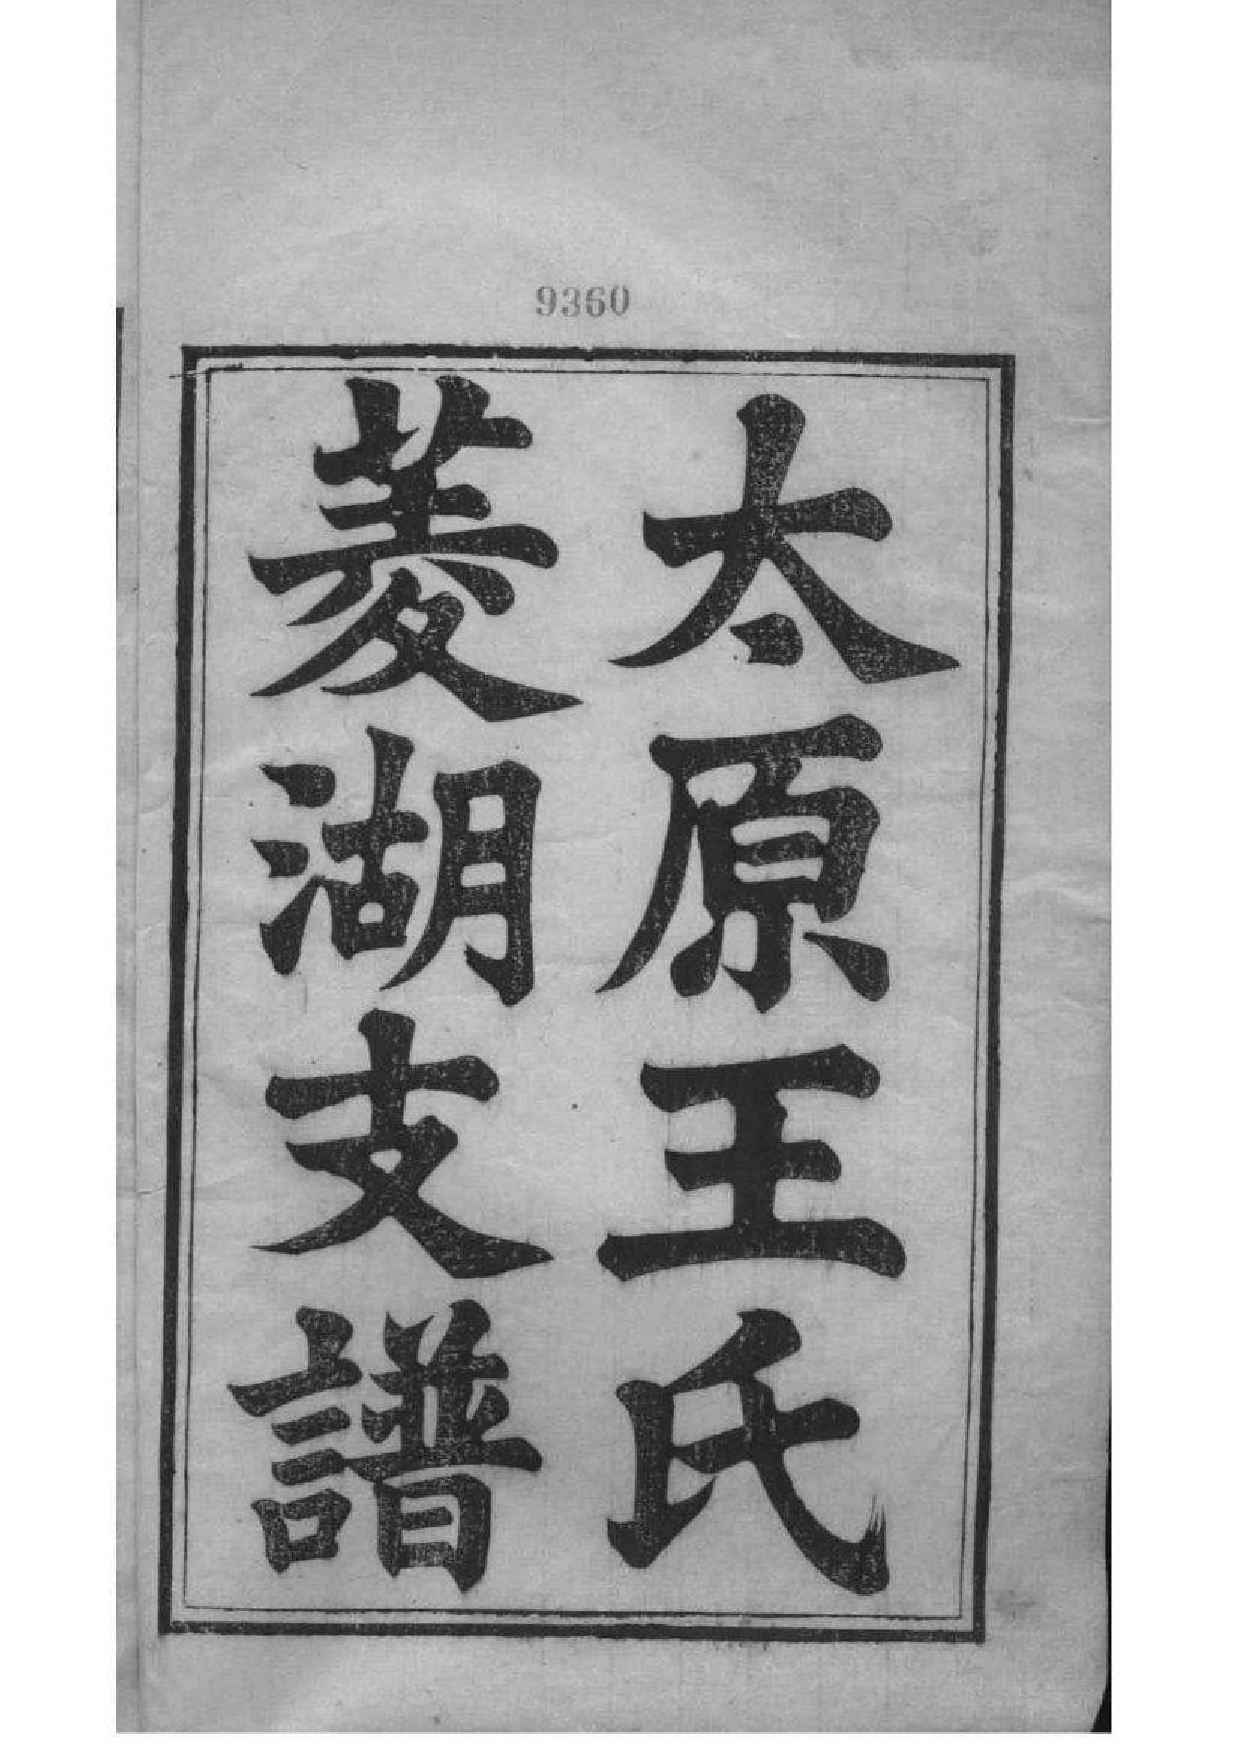 9360
太原王氏
菱湖支譜